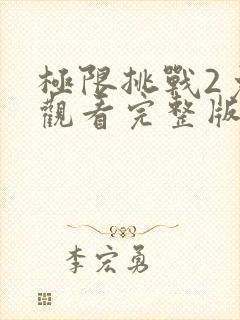 極限挑戰2
觀看完整版
李宏勇